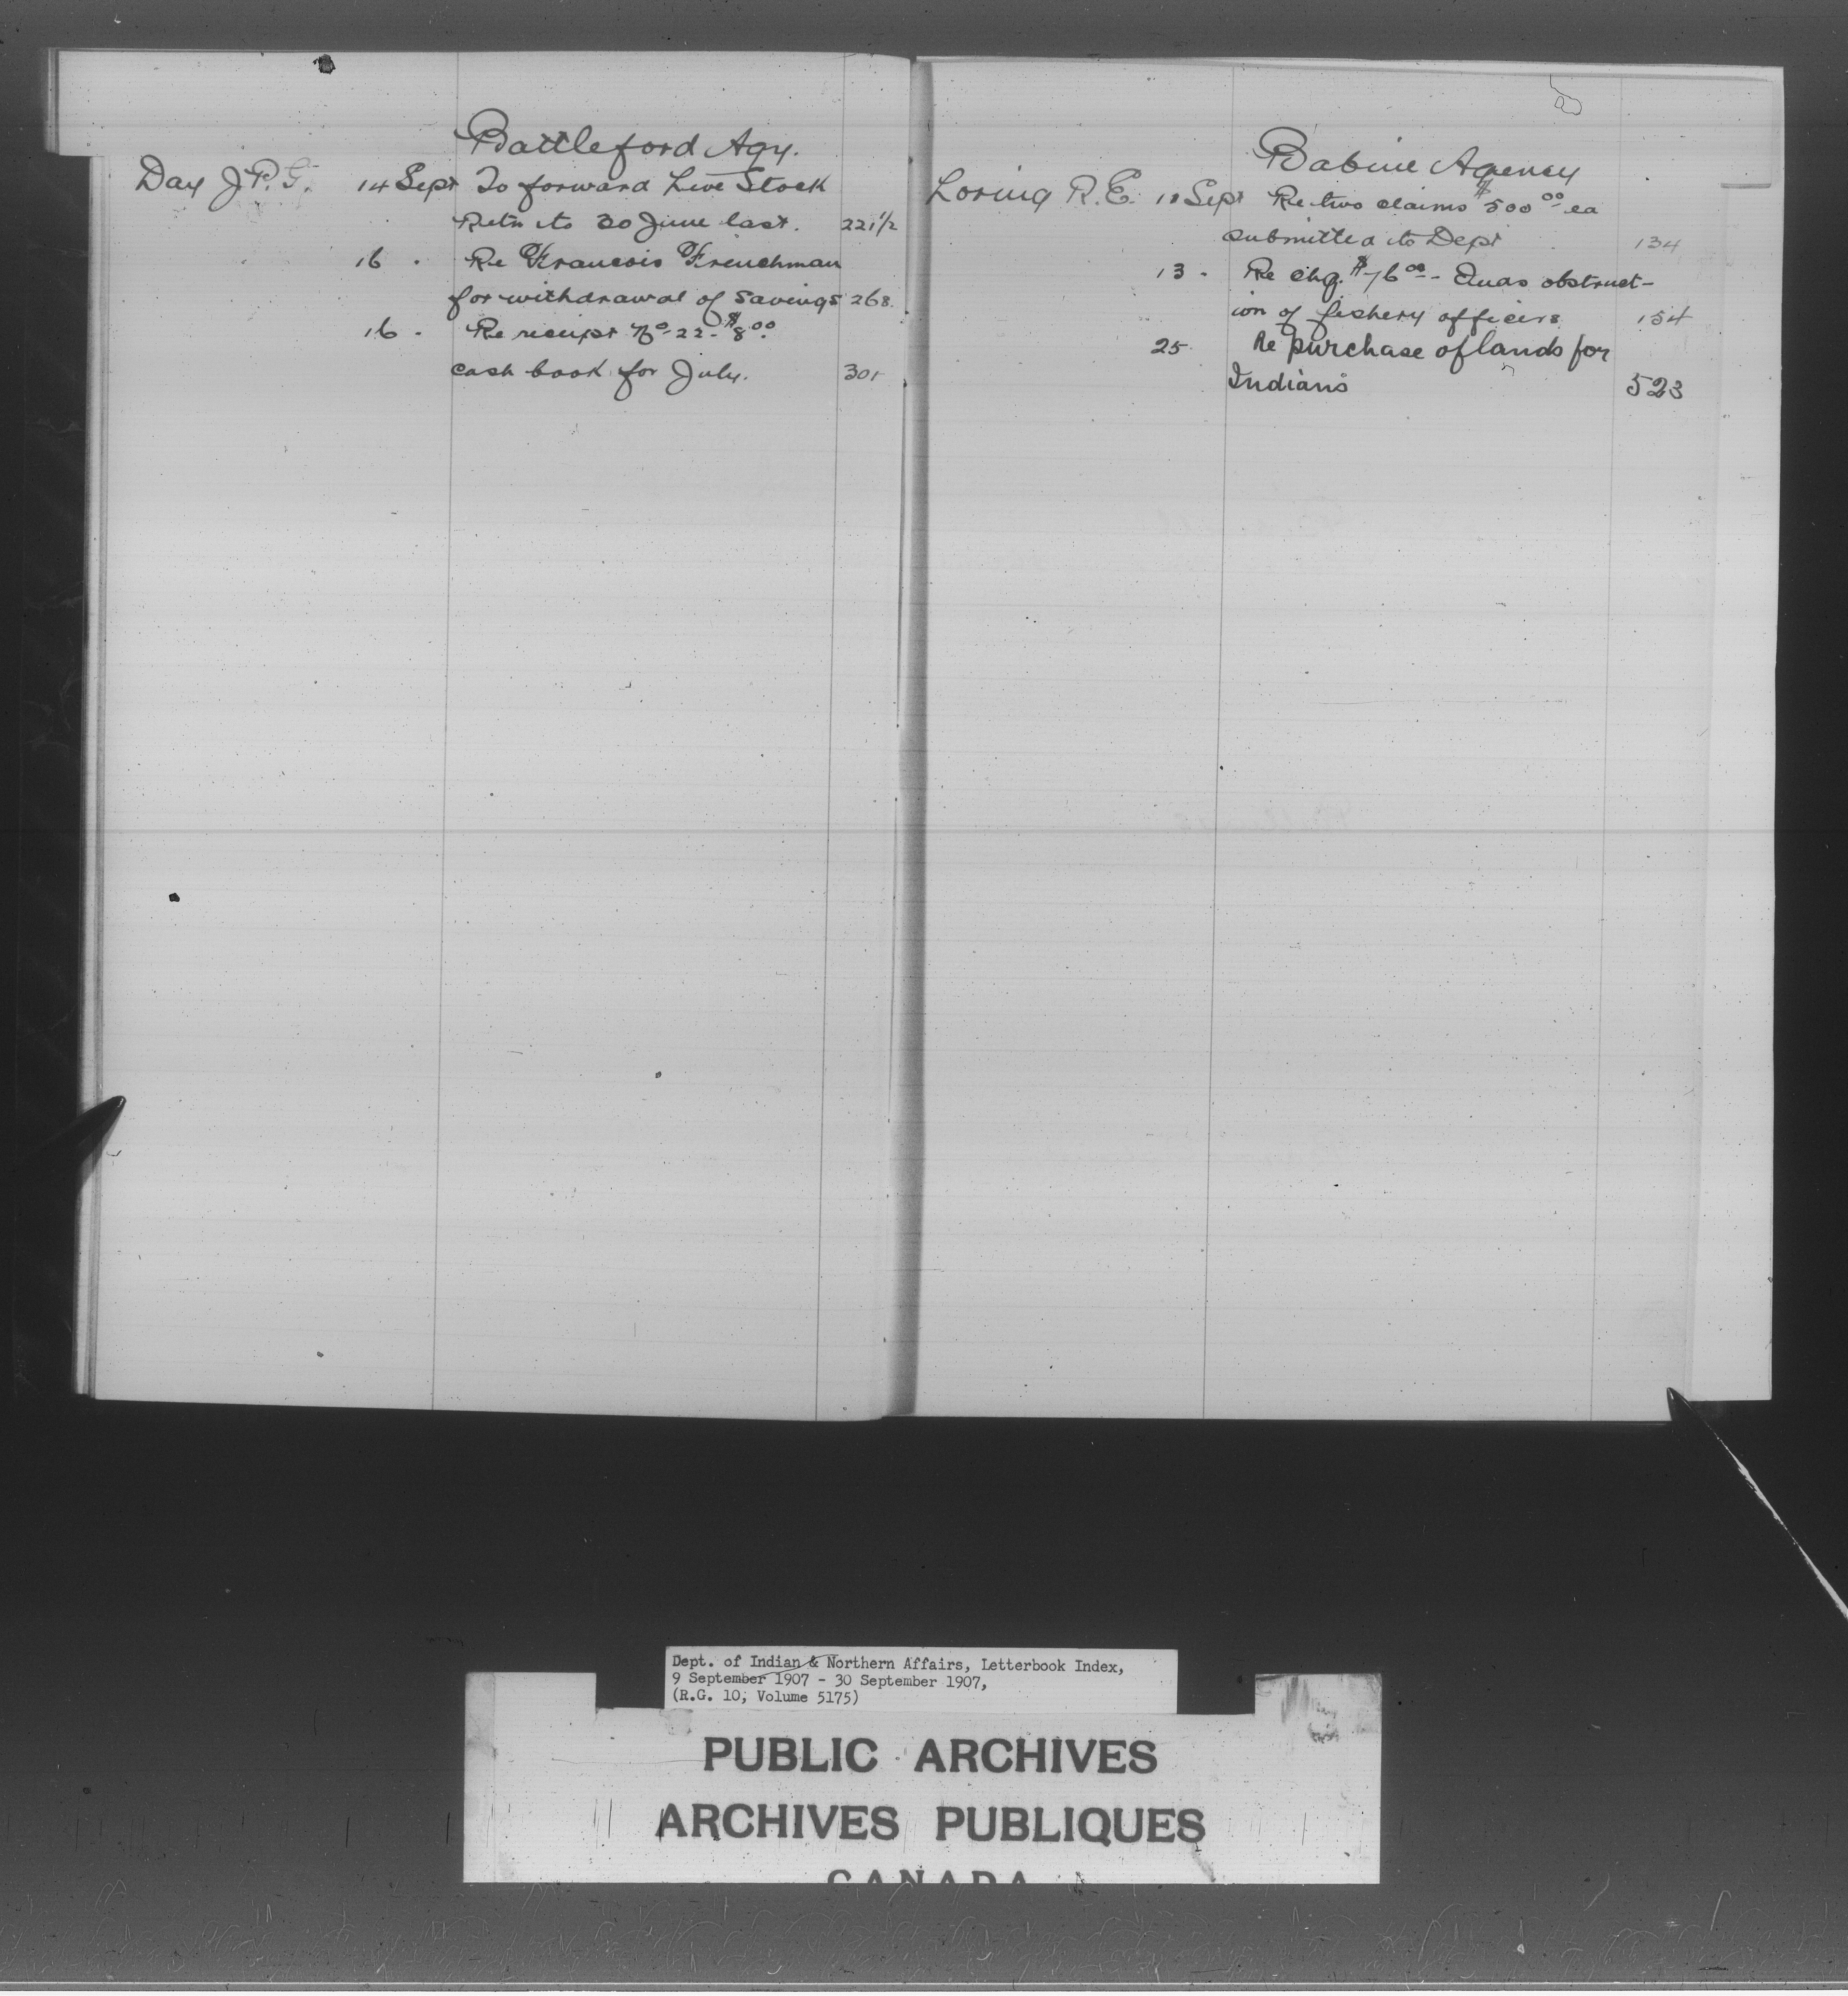 Battleford Agy.
Day J.P.G. 14 Sept To forward Live Stock
Retn to 30 June last. 221½
16 . Re Francois Frenchman
for withdrawal of savings 268
16 . Re receipt No 22 - $8.00
cash book for July. 301
Babine Agency
Loring R.E. Sept Re two claims $500.00 ea
submitted to Dept 134
13 . Re chg. $76.00 - obstruct-
ion of fishery officers 154
25 Re purchase of lands for
Indians 523
Dept. of Indian & Northern Affairs, Letterbook Index,
9 September 1907 - 30 September 1907,
(R.G. 10, Volume 5175)
PUBLIC ARCHIVES
ARCHIVES PUBLIQUES
CANADA